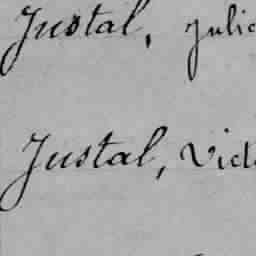 Justal, Julio
Justal, Vict